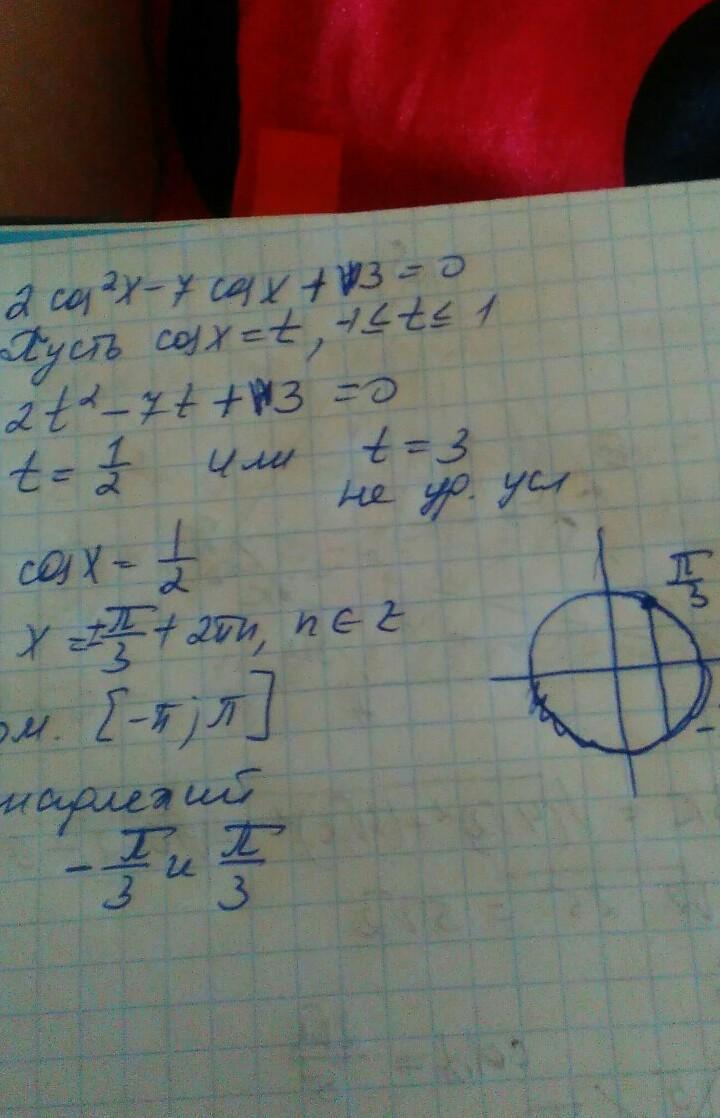 2 cos²x - 7 cos x + 3 = 0
Пусть cos x = t, -1 ≤ t ≤ 1
2t² - 7t + 3 = 0
t = 1/2 или t = 3
не ур. усл
cos x = 1/2
π/3
x = ±π/3 + 2πn, n ∈ Z
ом. [-π; π]
-
надлежит
-π/3 и π/3